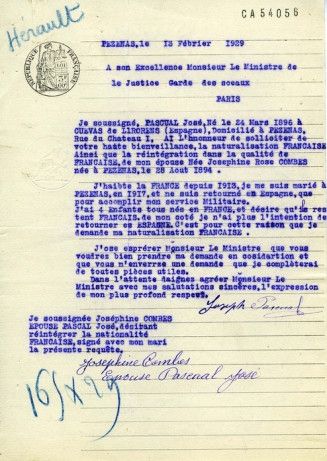 CA54056
Hérault
RÉPUBLIQUE FRANÇAISE
PEZENAS, le 13 Février 1929
A son Excellence Monsieur Le Ministre de
le Justice Garde des sceaux
PARIS
Je soussigné, PASCUAL José, Né le 24 Mars 1896 à
CUEVAS de LIRORENS (Espagne), Domicilié à PEZENAS,
Rue du Chateau I, Ai L'hnonneur de solliciter de
votre haute bienveillance, la naturalisation FRANCAISE
Ainsi que la réintégration dans la qualité de
FRANCAISE, de mon épouse Née Josephine Rose COMBES
née à PEZENAS, le 28 Aout 1894 .
J'haibte la FRANCE depuis I9I3, je me suis marié à
PEZENAS, en I9I7, et ne me suis retourné en Espagne, que
pour accomplir mon service Militaire.
J'ai 4 Enfants tous née en FRANCE, et désire qu'ils res
tent FRANCAIS, de mon coté je n'ai plus l'intention de
retourner en ESPAGNE C'est pour cette raison que je
demande ma naturalisation FRANCAISE .
J'ose esprérer Monsieur Le Ministre que vous
voudres bien prendre ma demande en cosidartion et
que vous m'enverrez une demande que je complèterai
de toutes pièces utiles.
Dans l'attente daignes agréer Monsieur Le
Ministre avec mes salutations sincères, l'expression
de mon plus profond respect.
Joseph Pascual
Je soussignée Joséphine COMBES
EPOUSE PASCAL JOSÉ, désirant
réintégrer la nationalité
FRANCAISE, signé avec mon mari
la présente requête.
Josephine Combes
Epouse Pascual José